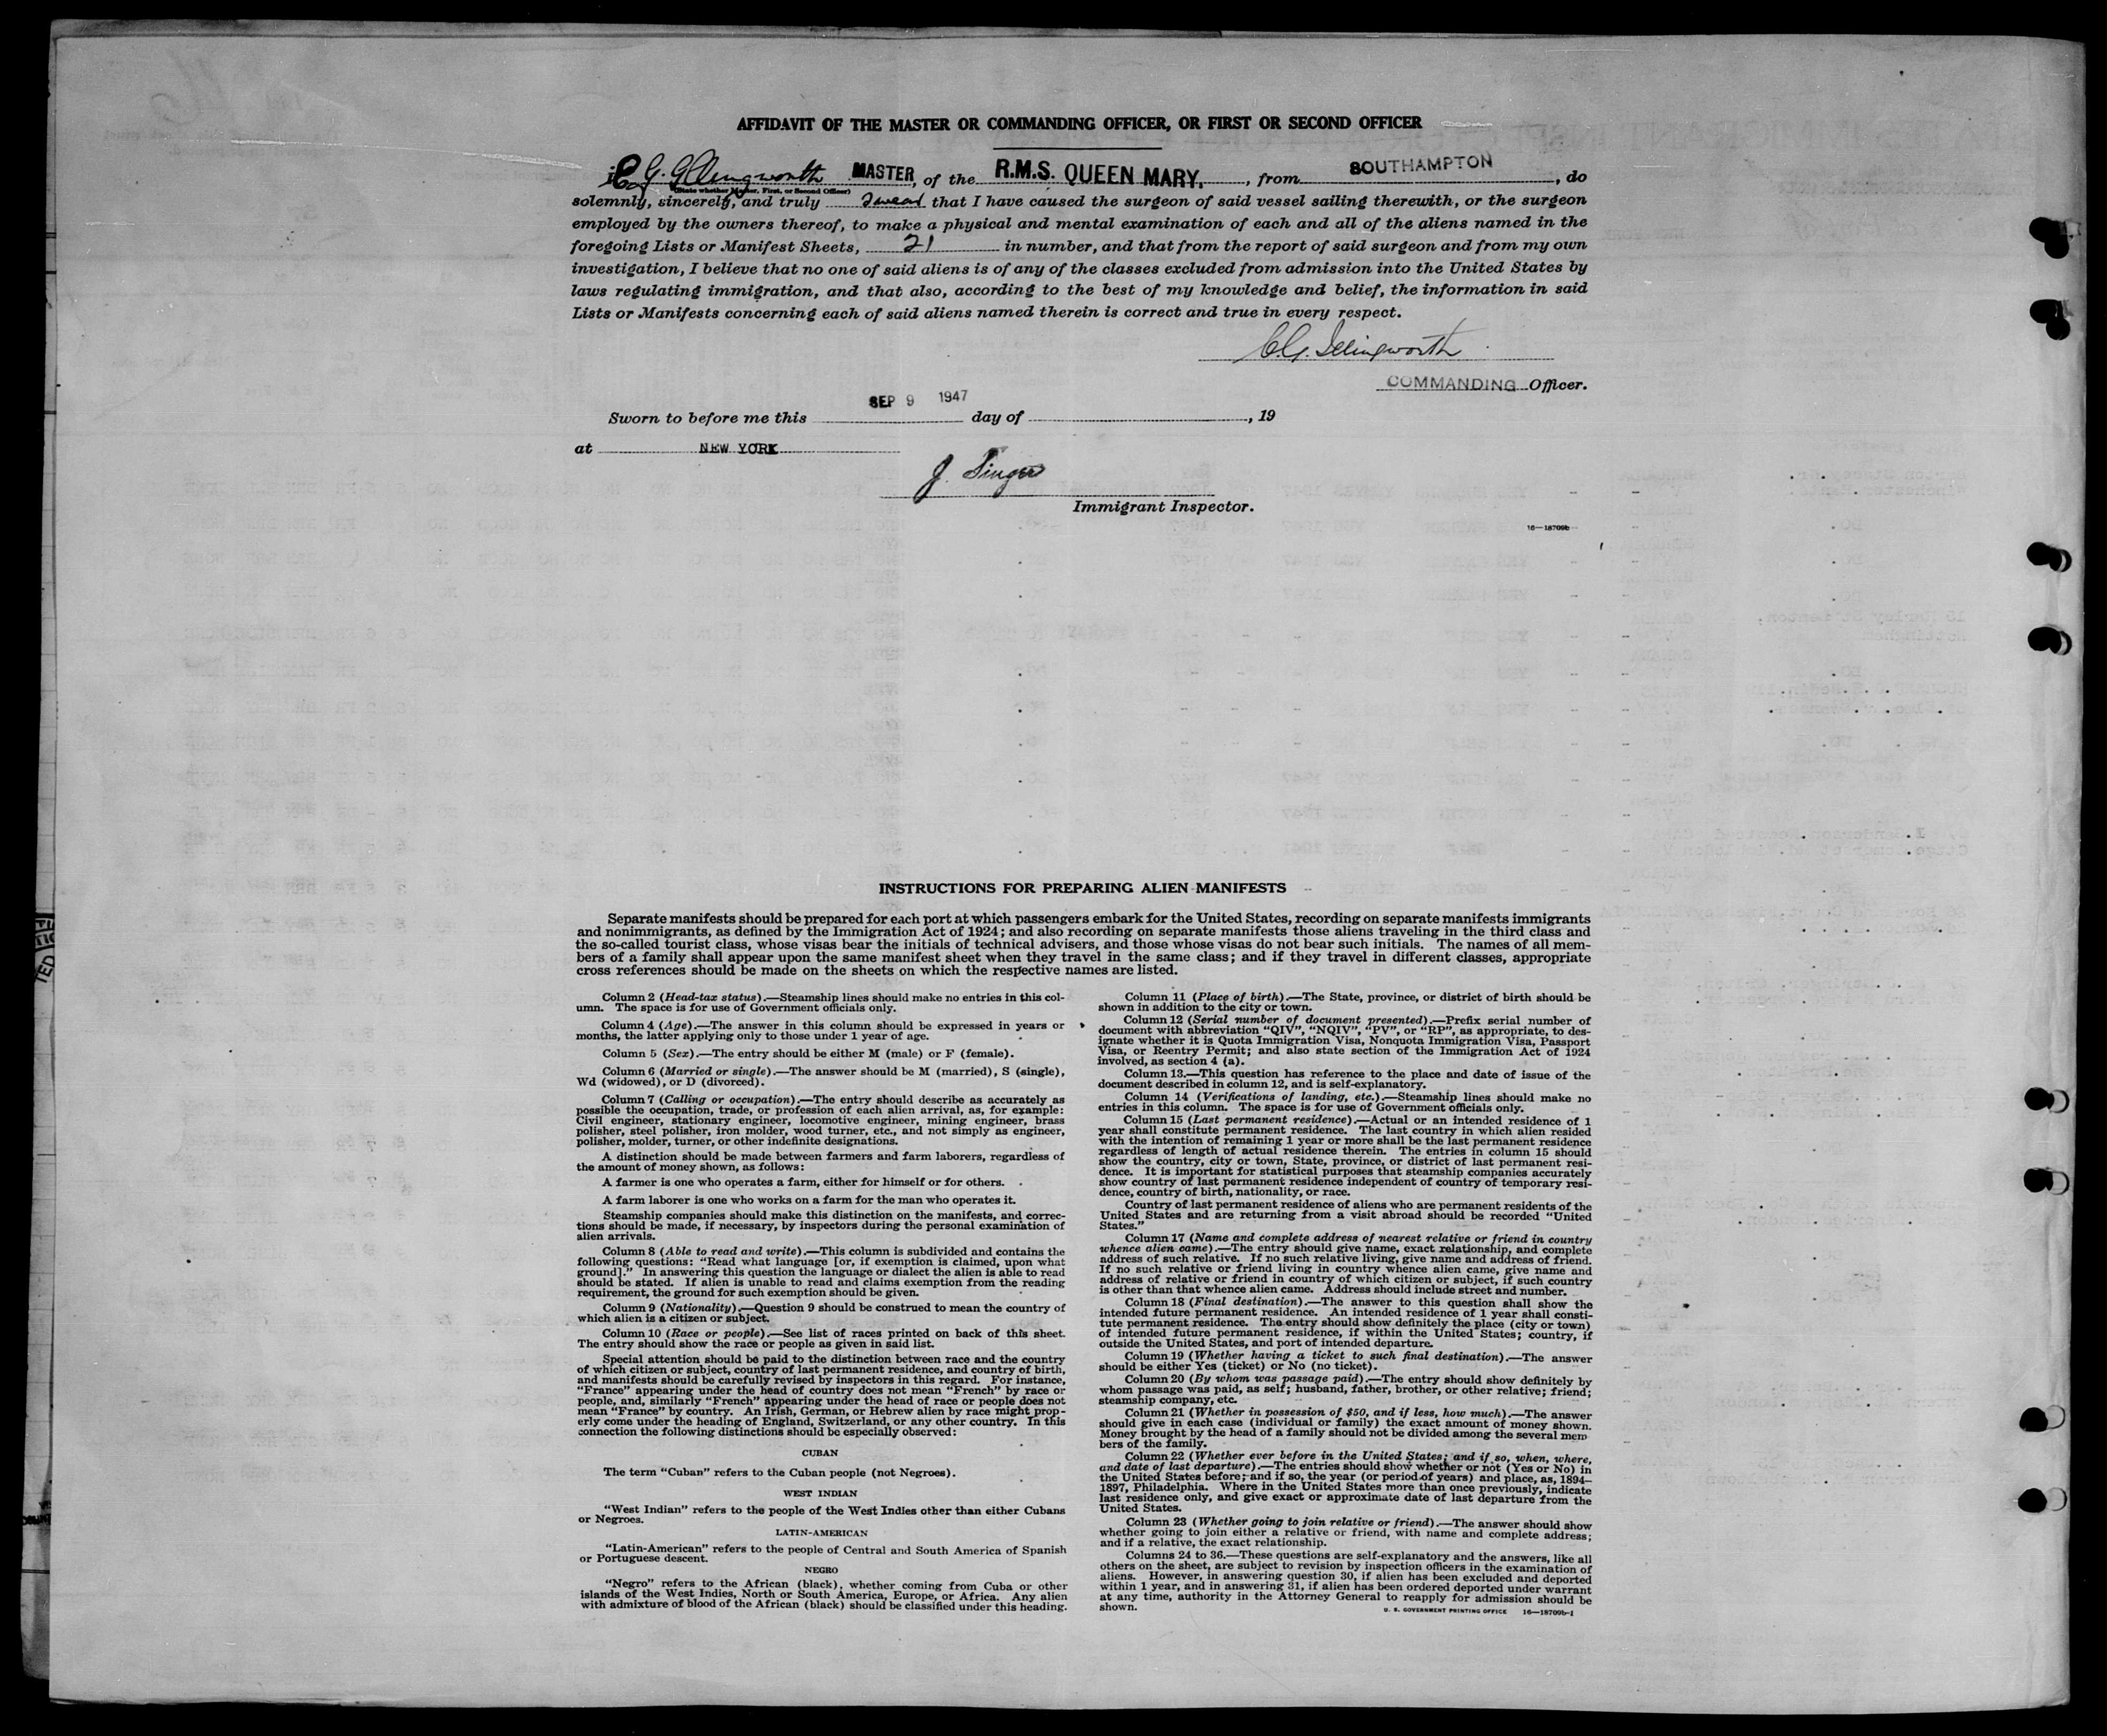 AFFIDAVIT OF THE MASTER OR COMMANDING OFFICER, OR FIRST OR SECOND OFFICER
I, C. G. Illingworth MASTER, of the R.M.S. QUEEN MARY, from SOUTHAMPTON, do
(State whether Master, First, or Second Officer)
solemnly, sincerely, and truly swear that I have caused the surgeon of said vessel sailing therewith, or the surgeon
employed by the owners thereof, to make a physical and mental examination of each and all of the aliens named in the
foregoing Lists or Manifest Sheets, 21 in number, and that from the report of said surgeon and from my own
investigation, I believe that no one of said aliens is of any of the classes excluded from admission into the United States by
laws regulating immigration, and that also, according to the best of my knowledge and belief, the information in said
Lists or Manifests concerning each of said aliens named therein is correct and true in every respect.
C.G. Illingworth
COMMANDING Officer.
SEP 9 1947
Sworn to before me this day of , 19
at NEW YORK
J. Singer
Immigrant Inspector.
16—18709b
INSTRUCTIONS FOR PREPARING ALIEN MANIFESTS
Separate manifests should be prepared for each port at which passengers embark for the United States, recording on separate manifests immigrants
and nonimmigrants, as defined by the Immigration Act of 1924; and also recording on separate manifests those aliens traveling in the third class and
the so-called tourist class, whose visas bear the initials of technical advisers, and those whose visas do not bear such initials. The names of all mem-
bers of a family shall appear upon the same manifest sheet when they travel in the same class; and if they travel in different classes, appropriate
cross references should be made on the sheets on which the respective names are listed.
Column 2 (Head-tax status).—Steamship lines should make no entries in this col-
umn. The space is for use of Government officials only.
Column 4 (Age).—The answer in this column should be expressed in years or
months, the latter applying only to those under 1 year of age.
Column 5 (Sex).—The entry should be either M (male) or F (female).
Column 6 (Married or single).—The answer should be M (married), S (single),
Wd (widowed), or D (divorced).
Column 7 (Calling or occupation).—The entry should describe as accurately as
possible the occupation, trade, or profession of each alien arrival, as, for example:
Civil engineer, stationary engineer, locomotive engineer, mining engineer, brass
polisher, steel polisher, iron molder, wood turner, etc., and not simply as engineer,
polisher, molder, turner, or other indefinite designations.
A distinction should be made between farmers and farm laborers, regardless of
the amount of money shown, as follows:
A farmer is one who operates a farm, either for himself or for others.
A farm laborer is one who works on a farm for the man who operates it.
Steamship companies should make this distinction on the manifests, and correc-
tions should be made, if necessary, by inspectors during the personal examination of
alien arrivals.
Column 8 (Able to read and write).—This column is subdivided and contains the
following questions: "Read what language [or, if exemption is claimed, upon what
ground]." In answering this question the language or dialect the alien is able to read
should be stated. If alien is unable to read and claims exemption from the reading
requirement, the ground for such exemption should be given.
Column 9 (Nationality).—Question 9 should be construed to mean the country of
which alien is a citizen or subject.
Column 10 (Race or people).—See list of races printed on back of this sheet.
The entry should show the race or people as given in said list.
Special attention should be paid to the distinction between race and the country
of which citizen or subject, country of last permanent residence, and country of birth,
and manifests should be carefully revised by inspectors in this regard. For instance,
"France" appearing under the head of country does not mean "French" by race or
people, and, similarly "French" appearing under the head of race or people does not
mean "France" by country. An Irish, German, or Hebrew alien by race might prop-
erly come under the heading of England, Switzerland, or any other country. In this
connection the following distinctions should be especially observed:
CUBAN
The term "Cuban" refers to the Cuban people (not Negroes).
WEST INDIAN
"West Indian" refers to the people of the West Indies other than either Cubans
or Negroes.
LATIN-AMERICAN
"Latin-American" refers to the people of Central and South America of Spanish
or Portuguese descent.
NEGRO
"Negro" refers to the African (black), whether coming from Cuba or other
islands of the West Indies, North or South America, Europe, or Africa. Any alien
with admixture of blood of the African (black) should be classified under this heading.
Column 11 (Place of birth).—The State, province, or district of birth should be
shown in addition to the city or town.
Column 12 (Serial number of document presented).—Prefix serial number of
document with abbreviation "QIV", "NQIV", "PV", or "RP", as appropriate, to des-
ignate whether it is Quota Immigration Visa, Nonquota Immigration Visa, Passport
Visa, or Reentry Permit; and also state section of the Immigration Act of 1924
involved, as section 4 (a).
Column 13.—This question has reference to the place and date of issue of the
document described in column 12, and is self-explanatory.
Column 14 (Verifications of landing, etc.).—Steamship lines should make no
entries in this column. The space is for use of Government officials only.
Column 15 (Last permanent residence).—Actual or an intended residence of 1
year shall constitute permanent residence. The last country in which alien resided
with the intention of remaining 1 year or more shall be the last permanent residence
regardless of length of actual residence therein. The entries in column 15 should
show the country, city or town, State, province, or district of last permanent resi-
dence. It is important for statistical purposes that steamship companies accurately
show country of last permanent residence independent of country of temporary resi-
dence, country of birth, nationality, or race.
Country of last permanent residence of aliens who are permanent residents of the
United States and are returning from a visit abroad should be recorded "United
States."
Column 17 (Name and complete address of nearest relative or friend in country
whence alien came).—The entry should give name, exact relationship, and complete
address of such relative. If no such relative living, give name and address of friend.
If no such relative or friend living in country whence alien came, give name and
address of relative or friend in country of which citizen or subject, if such country
is other than that whence alien came. Address should include street and number.
Column 18 (Final destination).—The answer to this question shall show the
intended future permanent residence. An intended residence of 1 year shall consti-
tute permanent residence. The entry should show definitely the place (city or town)
of intended future permanent residence, if within the United States; country, if
outside the United States, and port of intended departure.
Column 19 (Whether having a ticket to such final destination).—The answer
should be either Yes (ticket) or No (no ticket).
Column 20 (By whom was passage paid).—The entry should show definitely by
whom passage was paid, as self; husband, father, brother, or other relative; friend;
steamship company, etc.
Column 21 (Whether in possession of $50, and if less, how much).—The answer
should give in each case (individual or family) the exact amount of money shown.
Money brought by the head of a family should not be divided among the several mem
bers of the family.
Column 22 (Whether ever before in the United States; and if so, when, where,
and date of last departure).—The entries should show whether or not (Yes or No) in
the United States before; and if so, the year (or period of years) and place, as, 1894–
1897, Philadelphia. Where in the United States more than once previously, indicate
last residence only, and give exact or approximate date of last departure from the
United States.
Column 23 (Whether going to join relative or friend).—The answer should show
whether going to join either a relative or friend, with name and complete address;
and if a relative, the exact relationship.
Columns 24 to 36.—These questions are self-explanatory and the answers, like all
others on the sheet, are subject to revision by inspection officers in the examination of
aliens. However, in answering question 30, if alien has been excluded and deported
within 1 year, and in answering 31, if alien has been ordered deported under warrant
at any time, authority in the Attorney General to reapply for admission should be
shown.
U. S. GOVERNMENT PRINTING OFFICE 16—18709b-1